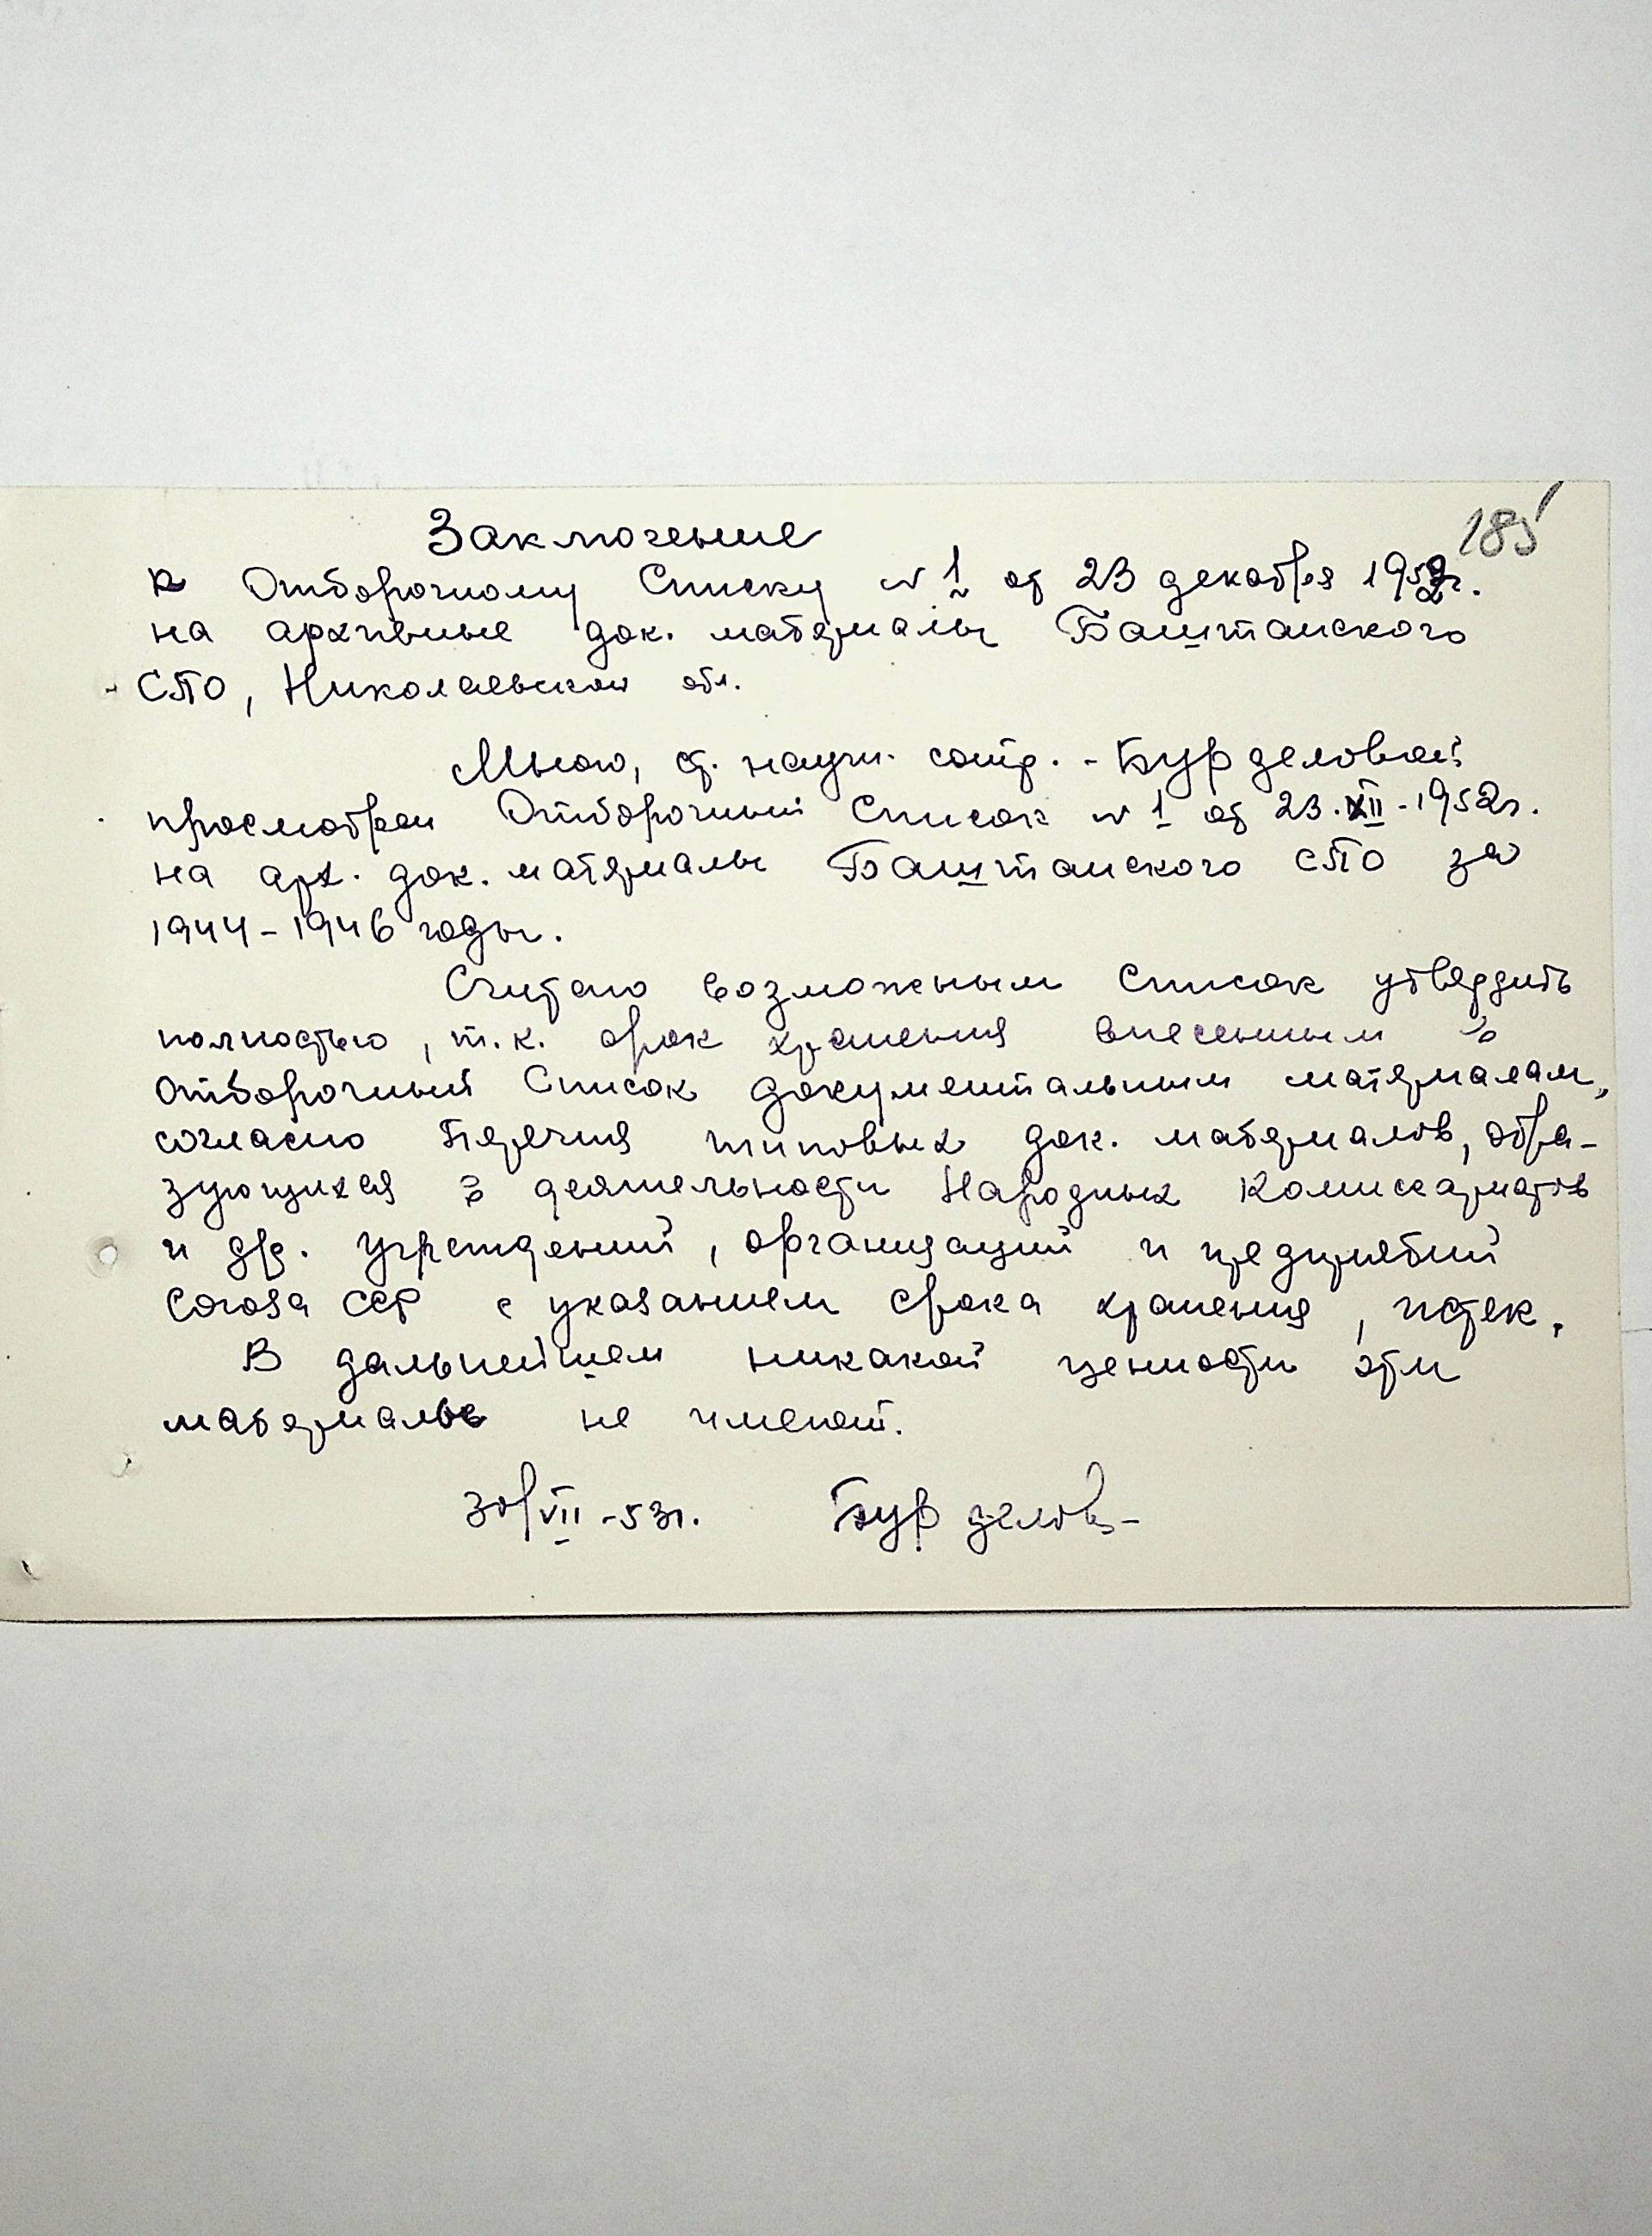 185
Заключение
к Отборочному Списку N 1 от 23 декабря 1952г.
на архивные док. материалы Баштанского
СПО, Николаевской обл.
Мною, ст. научн. сотр. - Бурделовой
просмотрен Отборочный Список N 1 от 23.XII-1952г.
на арх. док. материалы Баштанского СПО за
1944-1946 годы.
Считаю возможным Список утвердить
полностью, т.к. срок хранения внесенным в
Отборочный Список документальным материалам,
согласно Перечня типовых док. материалов, обра-
зующихся в деятельности Народных Комиссариатов
и др. учреждений, организаций и предприятий
Союза ССР с указанием срока хранения, истек.
В дальнейшем никакой ценности эти
материалы не имеют.
30/VII-53г. Бурделов-